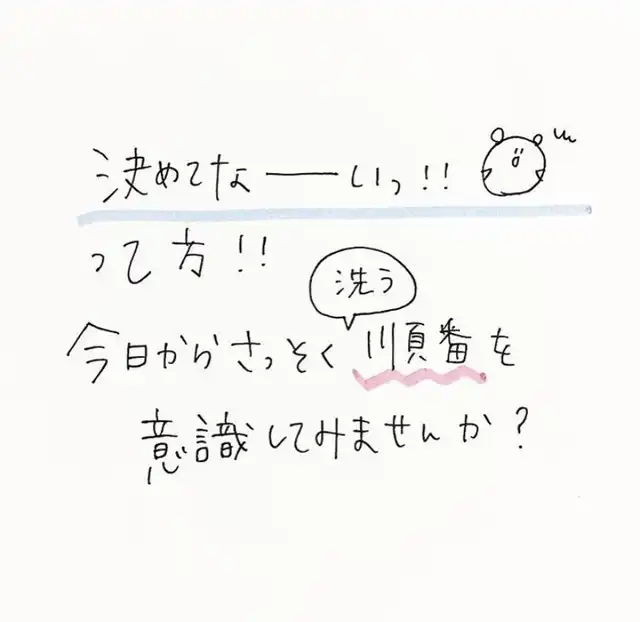 決めてなーーいっ!!
って方!!
洗う
今日からさっそく順番を
意識してみませんか?